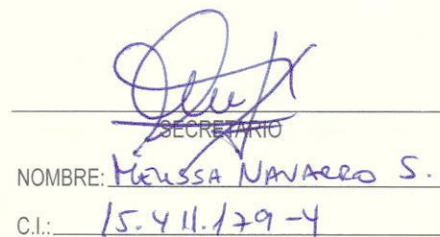 SECRETARIO
NOMBRE: MELISSA NAVARRO S.
C.I.: 15.411.179-4